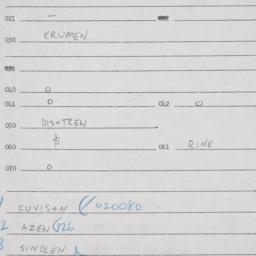 021 –
030 KRUMEN
040 0
041 0 042 0
050 DISTREN
060 061 RINE
070 0
1 CUVISTN (020080
2 AZEN (126
3 SINDLEN